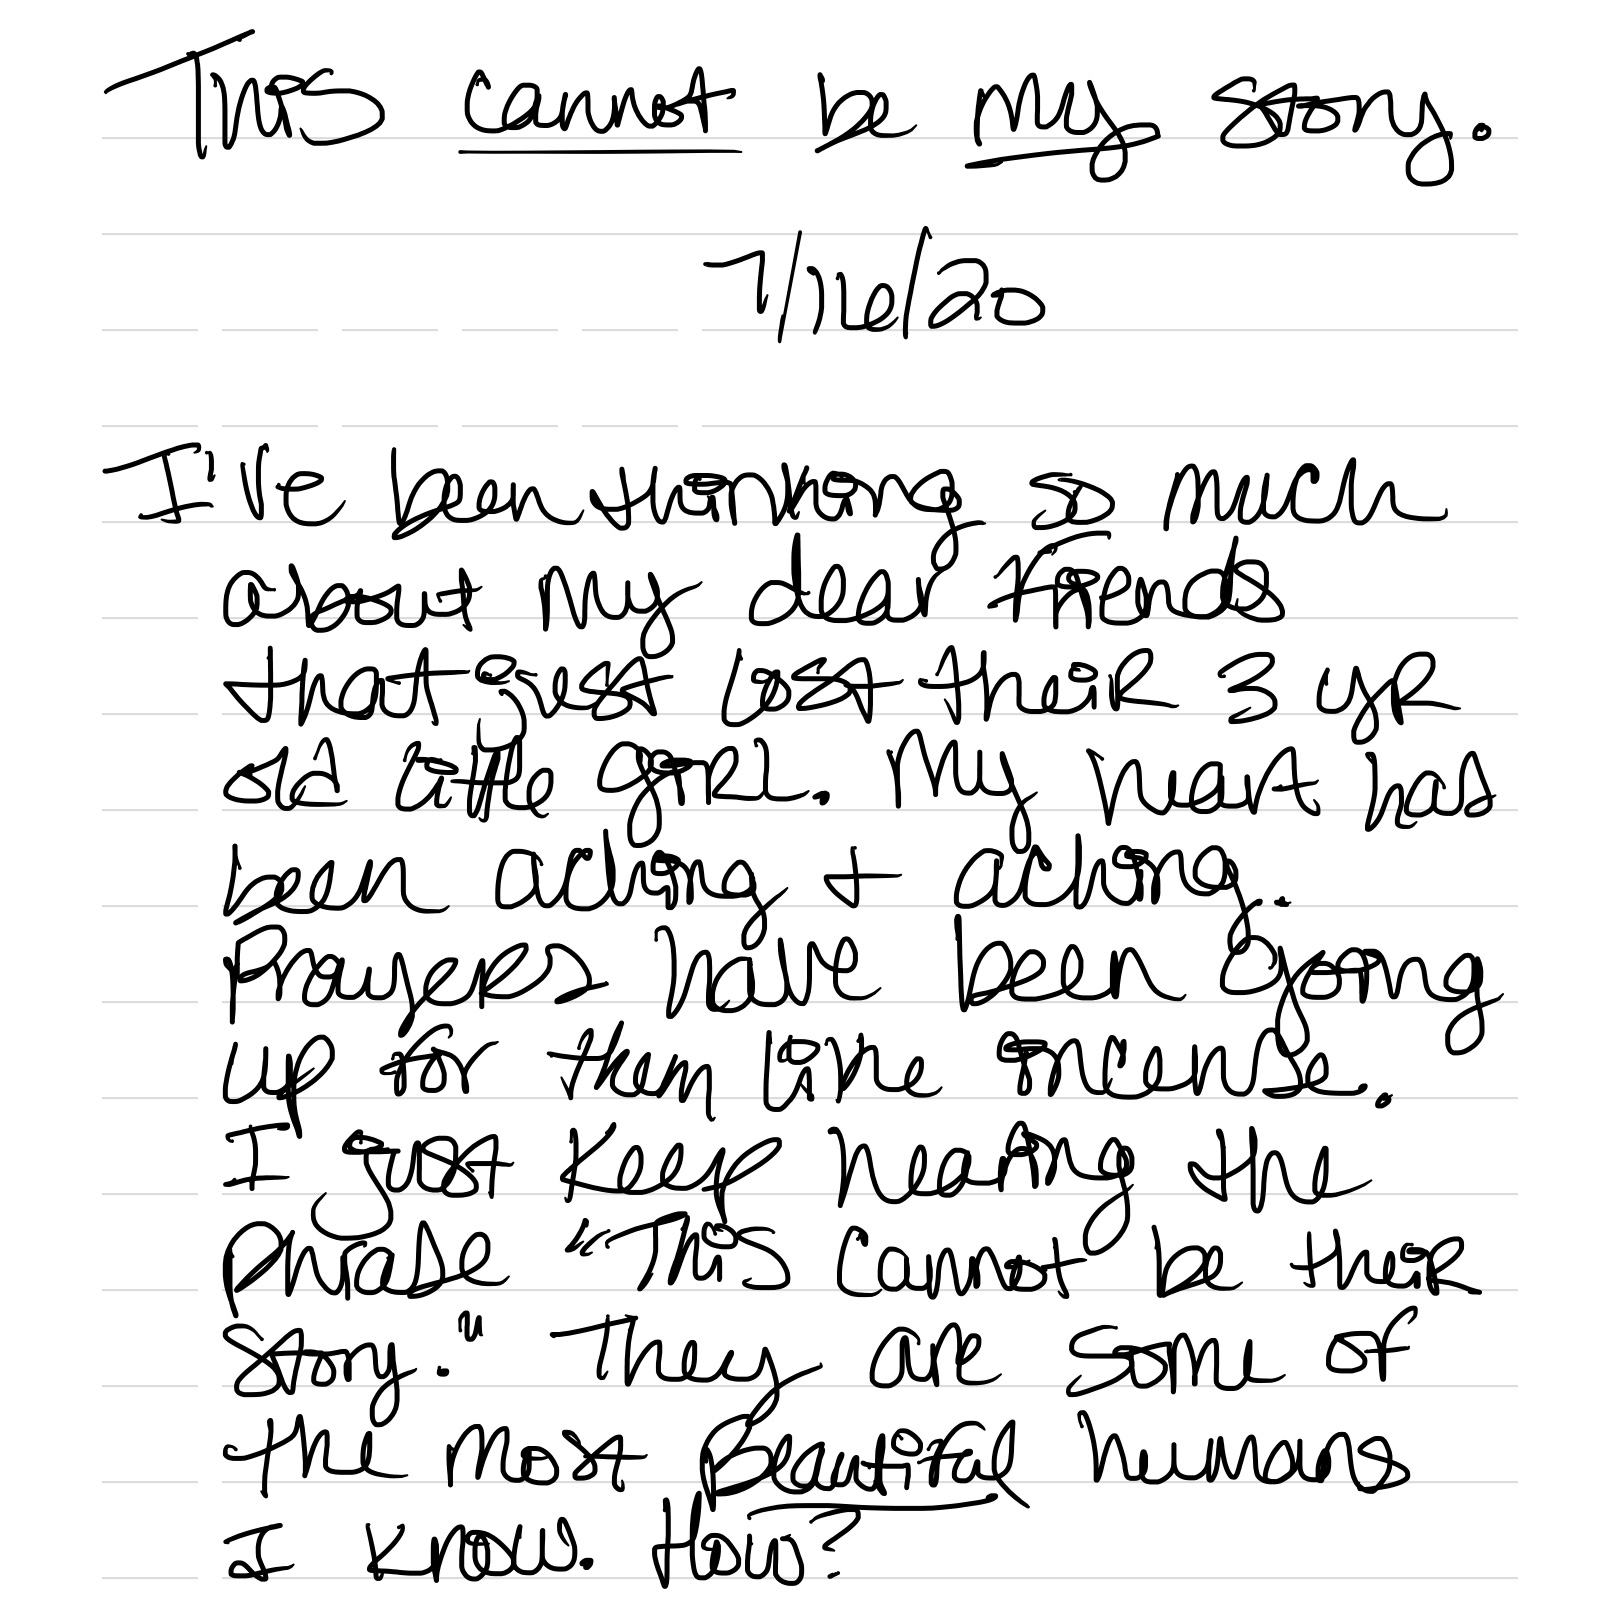 This cannot be my story.
7/16/20
I've been thinking so much
about my dear friends
that just lost their 3 yr
old little girl. My heart has
been aching + aching.
Prayers have been going
up for them like incense.
I just keep hearing the
phrase "This cannot be their
story." They are some of
the most Beautiful humans
I know. How?